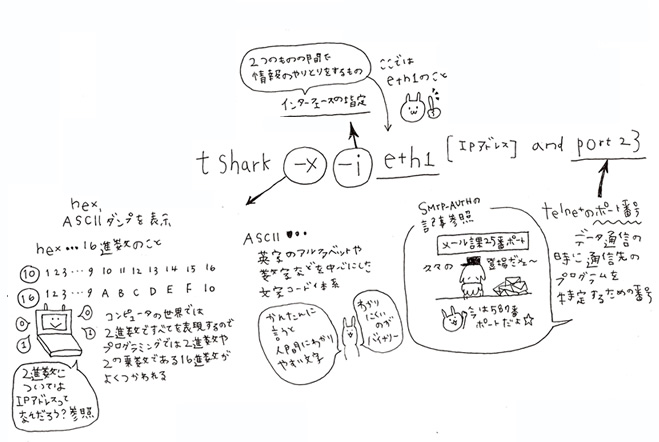 2つのものの間で
情報のやりとりをするもの
インターフェースの指定
ここでは
eth1のこと
tshark -x -i eth1 [IPアドレス] and port 23
hex,
ASCIIダンプを表示
hex…16進数のこと
10 1 2 3 … 9 10 11 12 13 14 15 16
16 1 2 3 … 9 A B C D E F 10
0
1
0
1
コンピュータの世界では
2進数ですべてを表現するので
プログラミングでは2進数や
2の乗数である16進数が
よくつかわれる
2進数に
ついては
IPアドレスって
なんだろう?参照
ASCII…
英字のアルファベットや
数字などを中心にした
文字コード体系
かんたんに
言うと
人間にわかり
やすい文字
わかり
にくい
のが
バイナリー
SMTP-AUTHの
記事参照
メール課25番ポート
スマの
登場だよ〜
今は587番
ポートだよ☆
telnetのポート番号
データ通信の
時に通信先の
プログラムを
特定するための番号